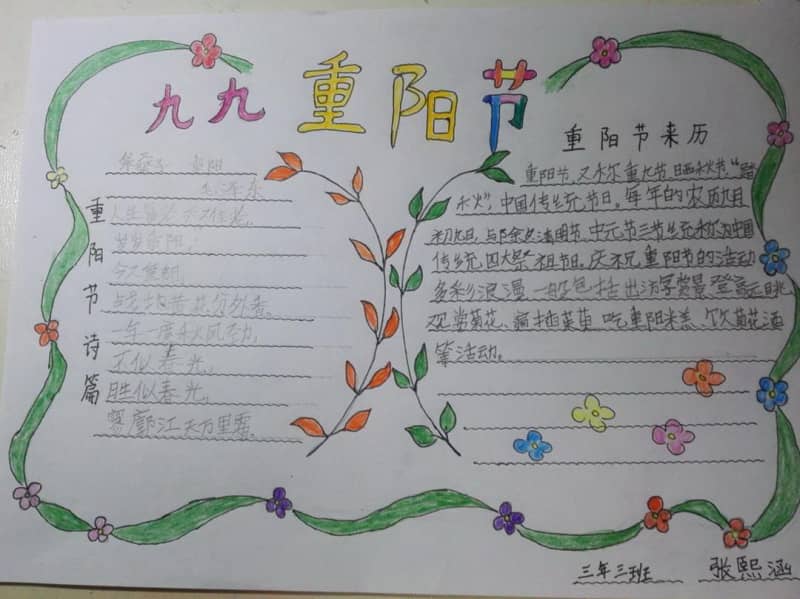 九九重阳节
重阳节诗篇
采桑子 重阳
毛泽东
人生易老天难老,
岁岁重阳,
今又重阳,
战地黄花分外香。
一年一度秋风劲,
不似春光,
胜似春光,
寥廓江天万里霜。
重阳节来历
重阳节,又称重九节、晒秋节、“踏
秋”,中国传统节日。每年的农历九月
初九日,与除夕、清明节、中元节三节统称为中国
传统四大祭祖节日。庆祝重阳节的活动
多彩浪漫,一般包括出游赏景、登高远眺、
观赏菊花、遍插茱萸、吃重阳糕、饮菊花酒
等活动。
三年三班 张熙涵